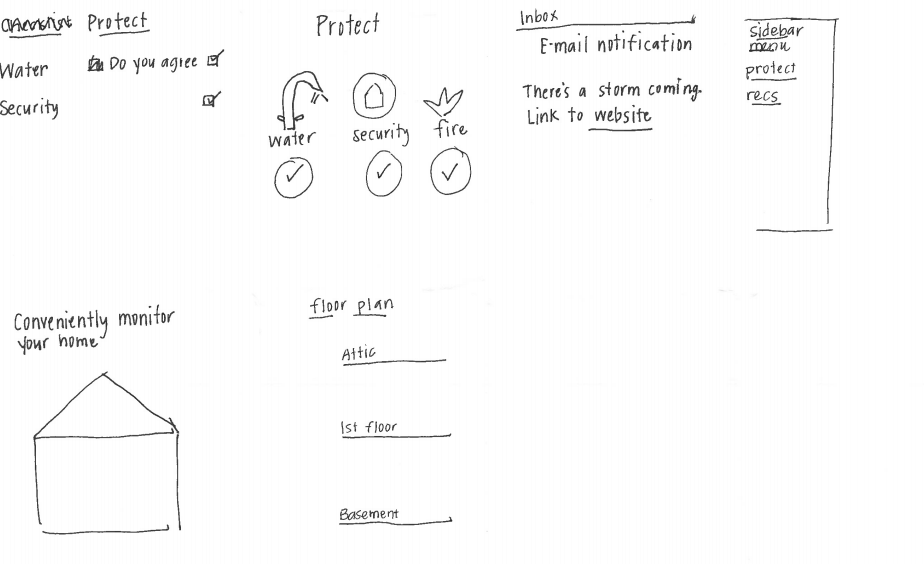 Protect
Water
Do you agree
Security
Protect
water
security
fire
Inbox
E-mail notification
There's a storm coming.
Link to website
sidebar
menu
protect
recs
Conveniently monitor
your home
floor plan
Attic
1st floor
Basement